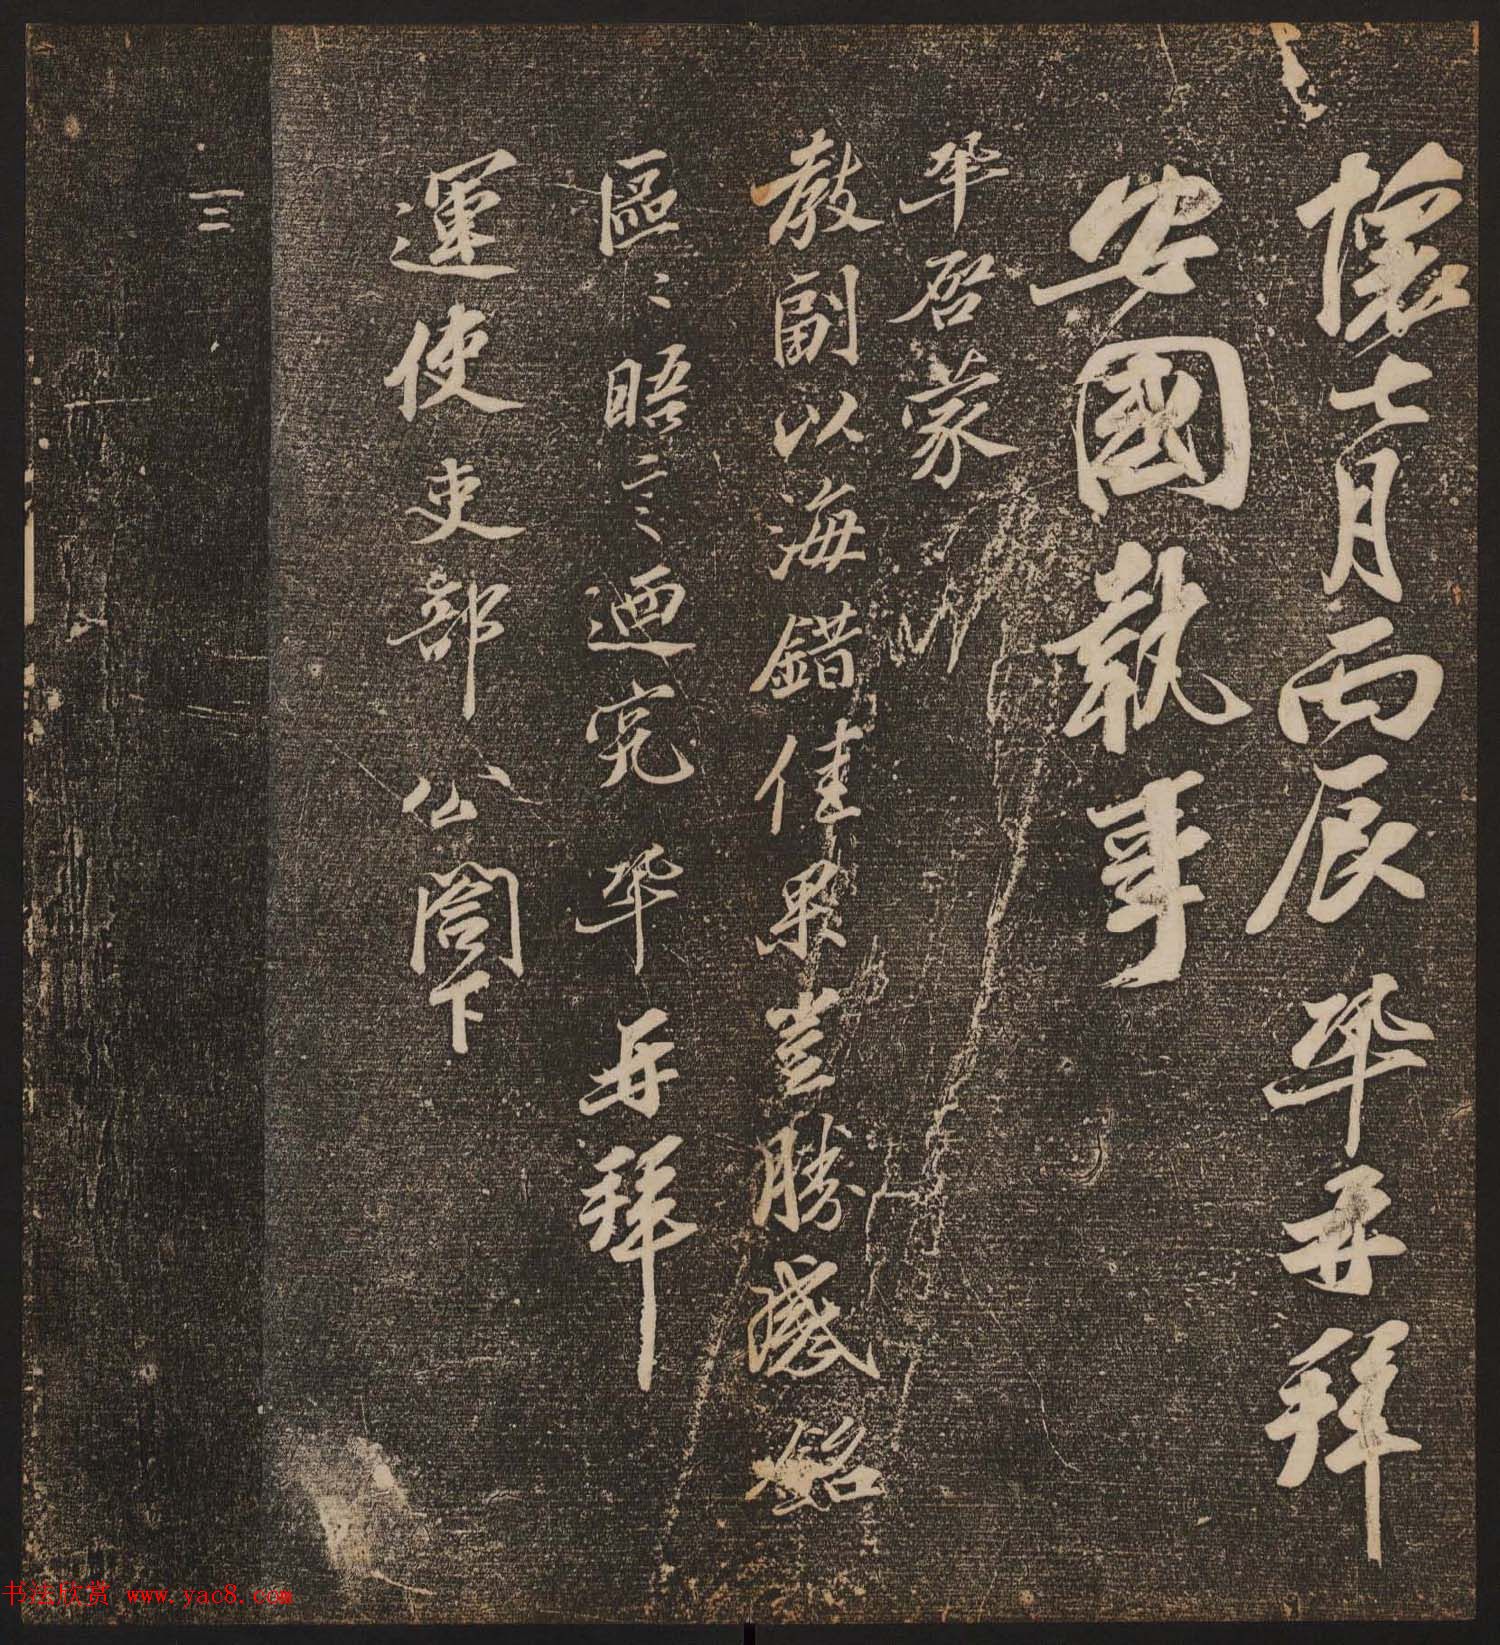 懷七月丙辰 再拜
安國執事
啓蒙
教副以海錯佳果豈勝感銘
區〻晤言迺究 再拜
運使吏部公閤下
三
书法欣赏 www.yac8.com